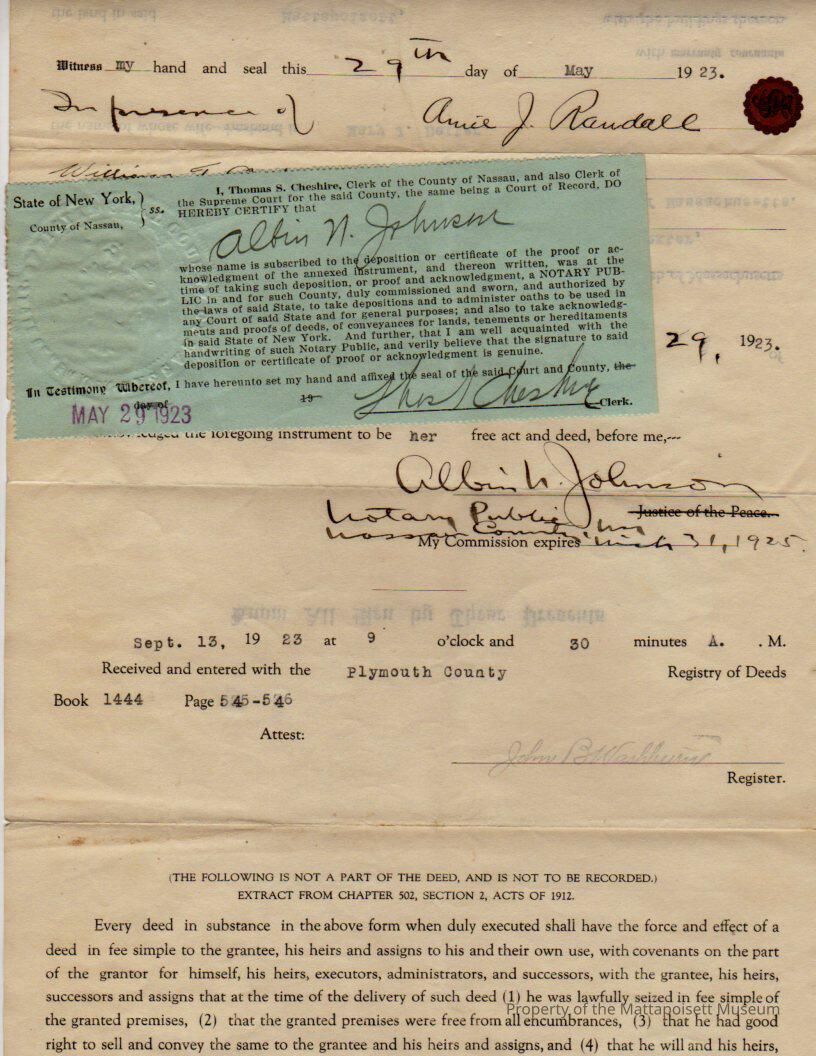 Witness my hand and seal this 29th day of May 1923.
In presence of Amie J. Randall
State of New York,
County of Nassau,
ss.
I, Thomas S. Cheshire, Clerk of the County of Nassau, and also Clerk of
the Supreme Court for the said County, the same being a Court of Record, DO
HEREBY CERTIFY that
Albin N. Johnson
whose name is subscribed to the deposition or certificate of the proof or ac-
knowledgment of the annexed instrument, and thereon written, was at the
time of taking such deposition, or proof and acknowledgment, a NOTARY PUB-
LIC in and for such County, duly commissioned and sworn, and authorized by
the laws of said State, to take depositions and to administer oaths to be used in
any Court of said State and for general purposes; and also to take acknowledg-
ments and proofs of deeds, of conveyances for lands, tenements or hereditaments
in said State of New York. And further, that I am well acquainted with the
handwriting of such Notary Public, and verily believe the signature to said
deposition or certificate of proof or acknowledgment is genuine.
In Testimony Whereof, I have hereunto set my hand and affixed the seal of the said Court and County, the
day of 19
MAY 29 1923
Thos S Cheshire Clerk.
29, 1923.
the foregoing instrument to be her free act and deed, before me,---
Albin N. Johnson
Notary Public Justice of the Peace.
Nassau County
My Commission expires March 31, 1925.
Sept. 13, 1923 at 9 o'clock and 30 minutes A. . M.
Received and entered with the Plymouth County Registry of Deeds
Book 1444 Page
Attest:
John B Washburn
Register.
(THE FOLLOWING IS NOT A PART OF THE DEED, AND IS NOT TO BE RECORDED.)
EXTRACT FROM CHAPTER 502, SECTION 2, ACTS OF 1912.
Every deed in substance in the above form when duly executed shall have the force and effect of a
deed in fee simple to the grantee, his heirs and assigns to his and their own use, with covenants on the part
of the grantor for himself, his heirs, executors, administrators, and successors, with the grantee, his heirs,
successors and assigns that at the time of the delivery of such deed (1) he was lawfully seized in fee simple of
the granted premises, (2) that the granted premises were free from all encumbrances, (3) that he had good
right to sell and convey the same to the grantee and his heirs and assigns, and (4) that he will and his heirs,
Property of the Mattapoisett Museum